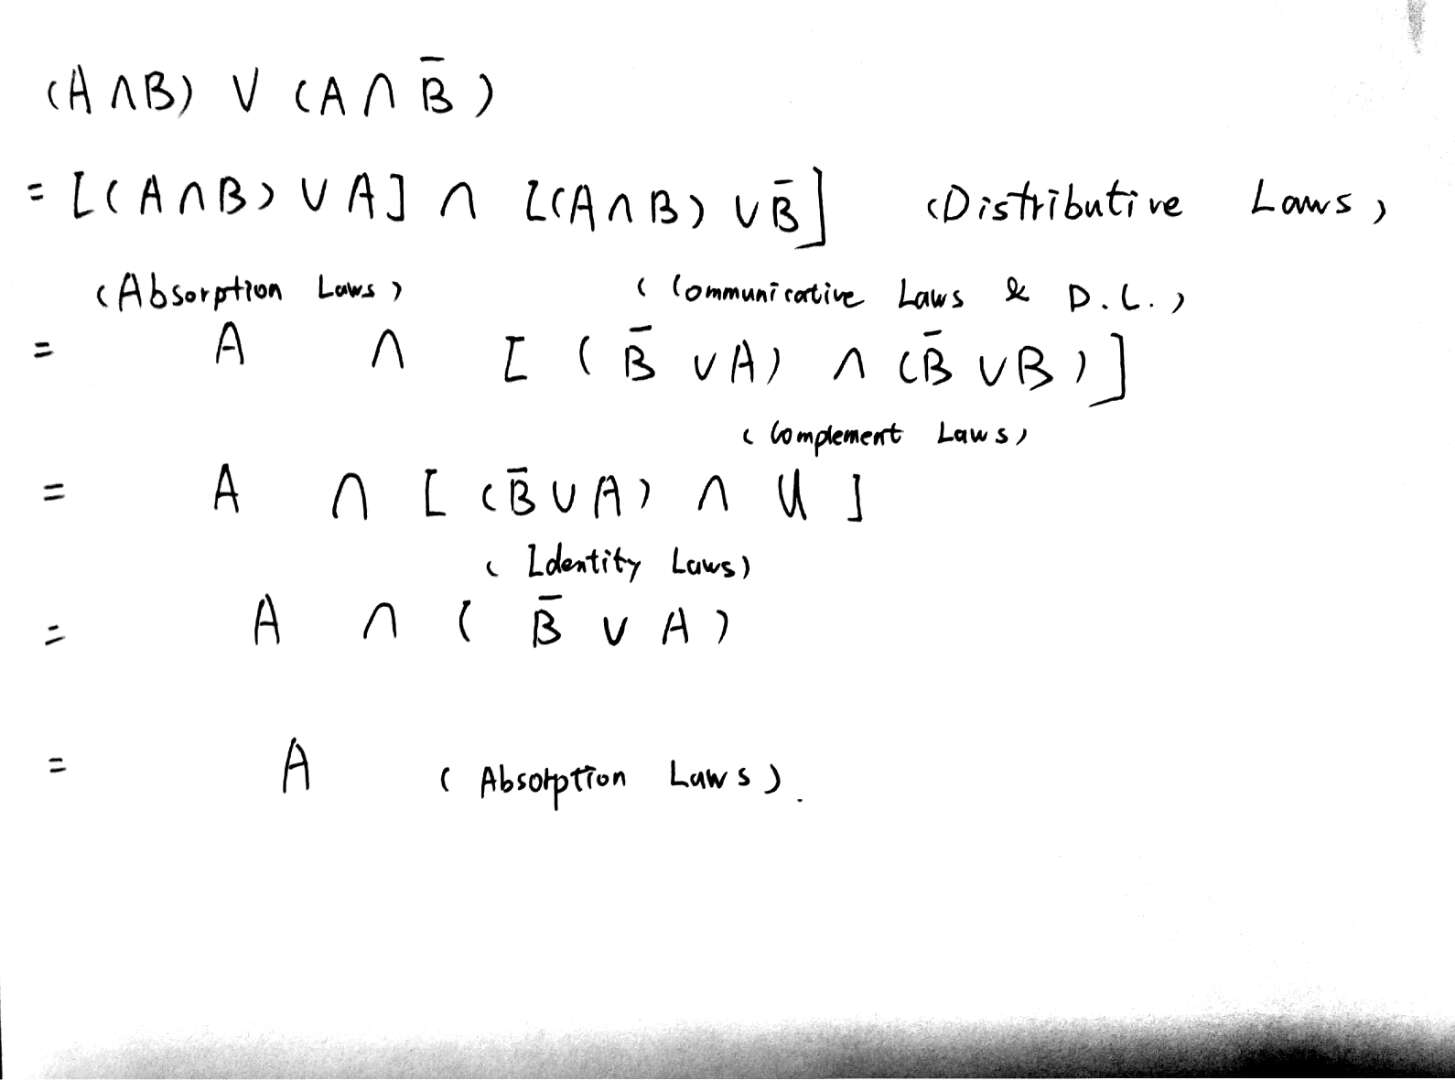 (A∩B) ∪ (A∩B̄)
= [(A∩B) ∪ A] ∩ [(A∩B) ∪ B̄] (Distributive Laws)
(Absorption Laws) (Communicative Laws & D.L.)
= A ∩ [(B̄ ∪ A) ∩ (B̄ ∪ B)]
(Complement Laws)
= A ∩ [(B̄ ∪ A) ∩ U]
(Identity Laws)
= A ∩ (B̄ ∪ A)
= A (Absorption Laws).